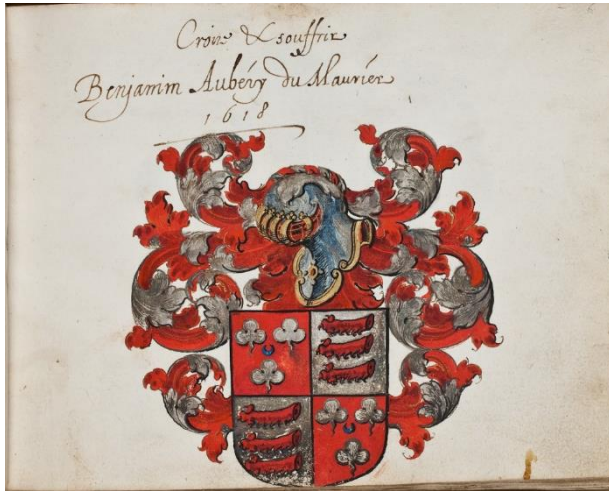 Croire & souffrir
Benjamin Aubéry du Maurier
1618